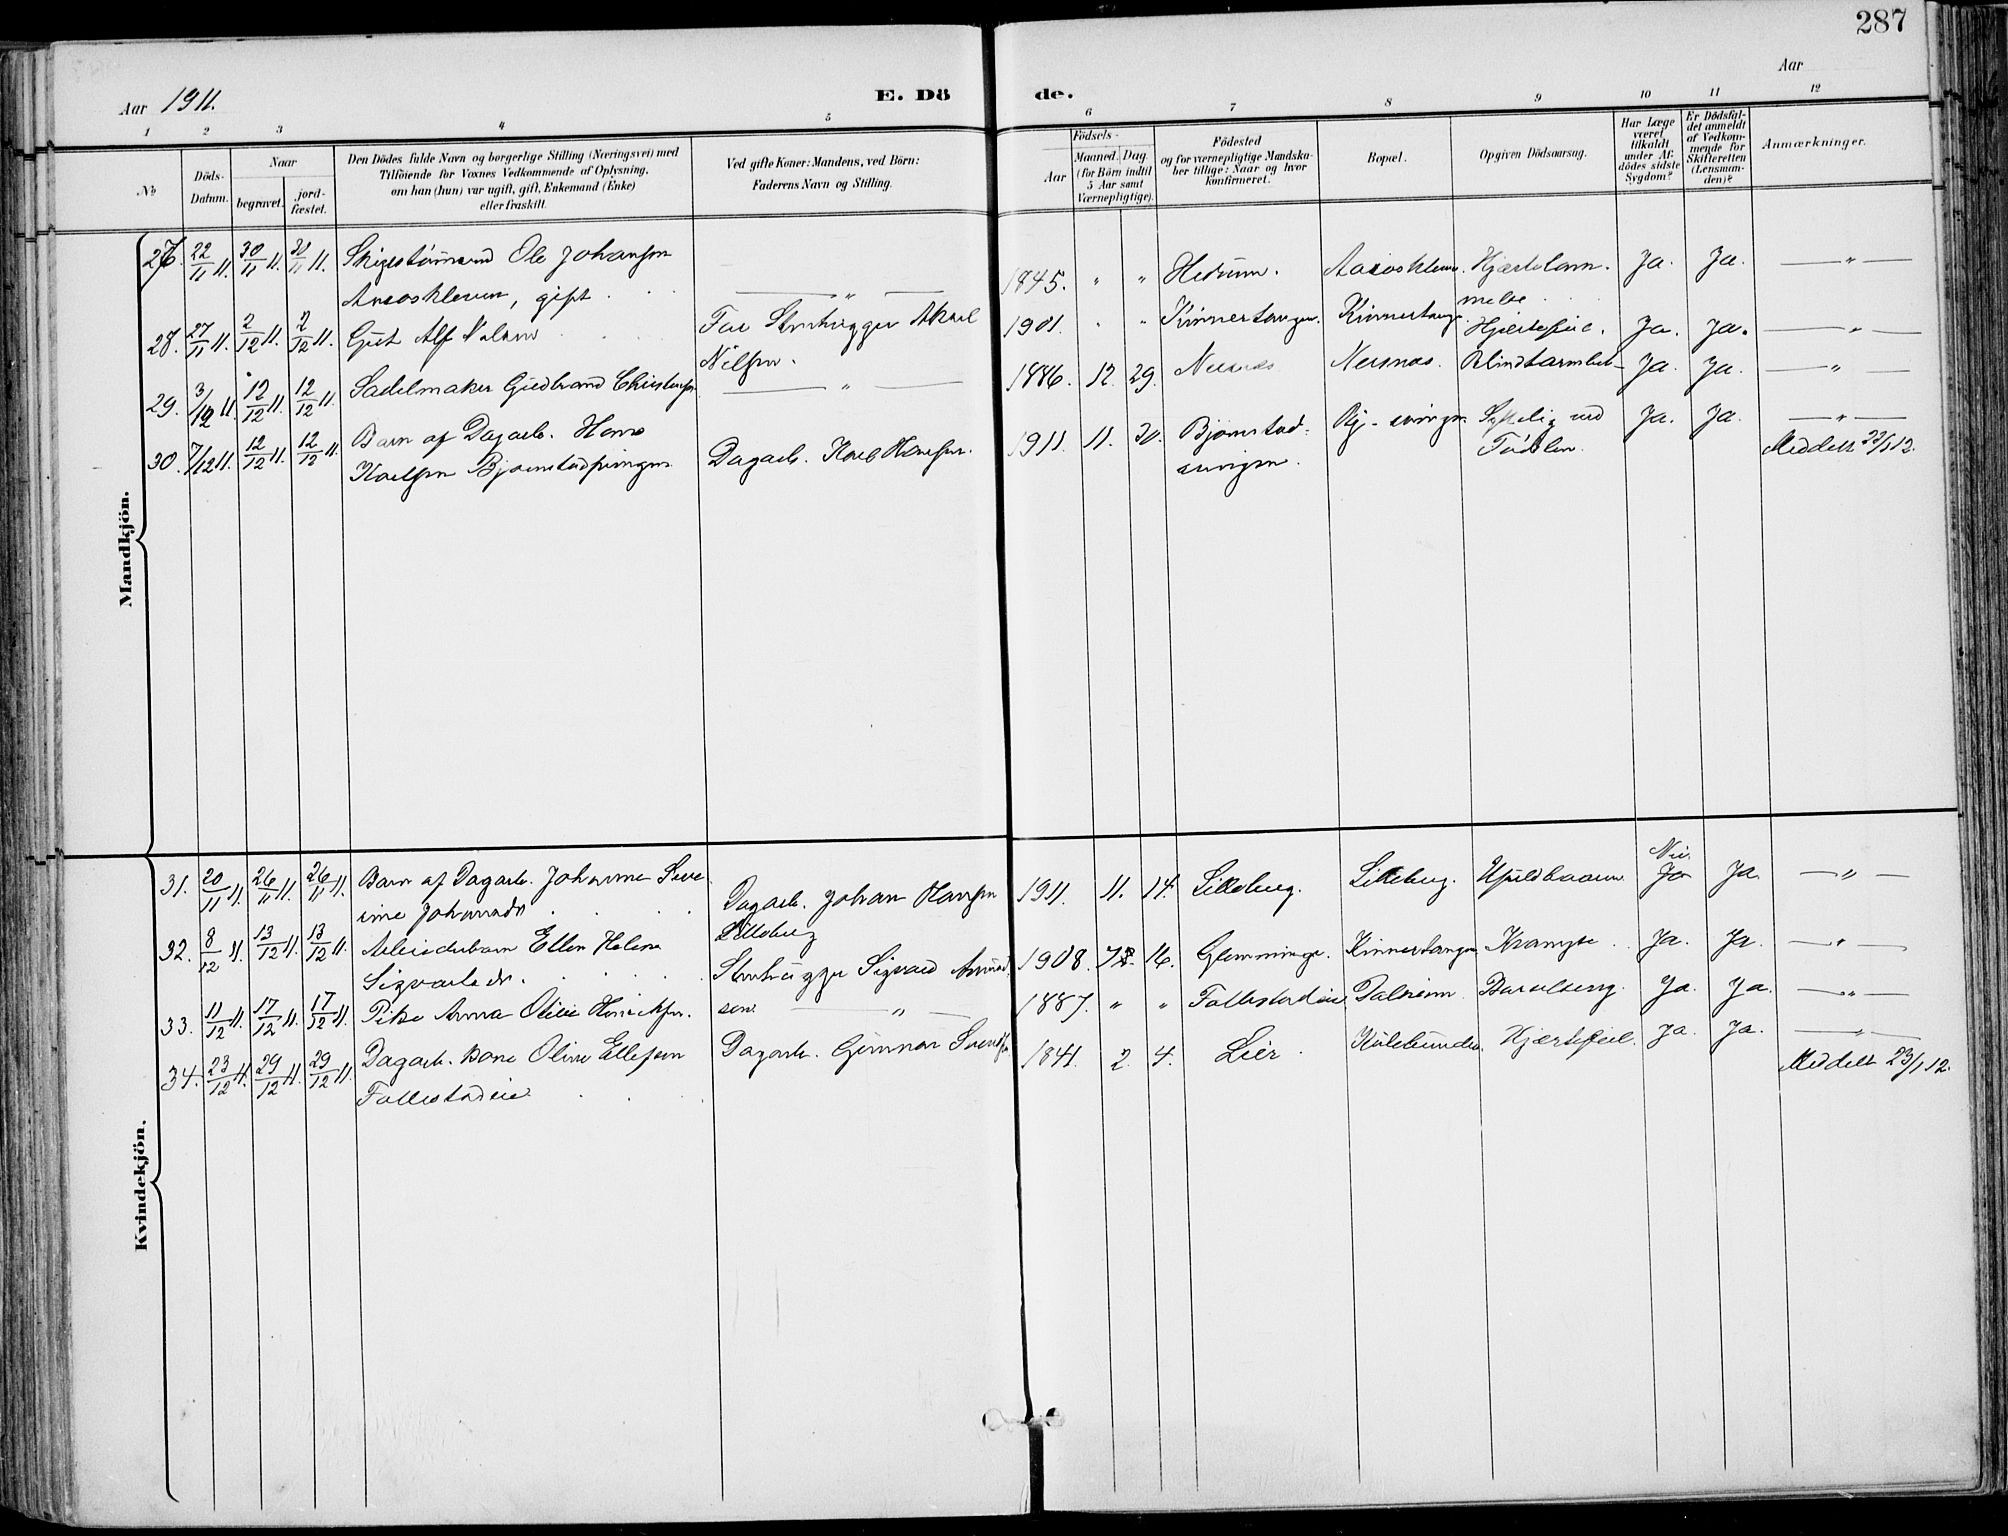 287
Aar 1911.
E. Dö de.
Aar
1 2 3 4 5 6 7 8 9 10 11 12
No
Döds-Datum.
Naar
begravet.
jord-fæstet.
Den Dödes fulde Navn og borgerlige Stilling (Næringsvei) med
Tilföiende for Voxnes Vedkommende af Oplysning,
om han (hun) var ugift, gift, Enkemand (Enke)
eller fraskilt.
Ved gifte Koner: Mandens, ved Börn:
Faderens Navn og Stilling.
Födsels-
Aar
Maaned. Dag.
(for Börn indtil
5 Aar samt
Værnepligtige).
Födested
og for værnepligtige Mandska-
ber tillige: Naar og hvor
konfirmeret.
Bopæl.
Opgiven Dödsaarsag.
Har Læge
været
tilkaldt
under Af-
dödes sidste
Sygdom?
Er Dödsfal-
det anmeldt
af Vedkom-
mende for
Skifteretten
(Lensman-
den)?
Anmærkninger.
Mandkjön.
27. 22/11 11. 30/11 11. 30/11 11. Ole Johansen
gift — " — 1845. " " Hedrum. Ja. Ja. — " —
28. 27/11 11. 2/12 11. 2/12 11. Gut Alf
Far Stenhugger Aksel
Nilsen. 1901. " " Kinnertangen. Kinnertangen. Hjertefeil. Ja. Ja. — " —
29. 3/12 11. 12/12 11. 12/12 11. Sadelmaker Gudbrand Christensen
— " — 1886. 12. 29. Nersnes. Blindtarmbet- Ja. Ja. — " —
30. 7/12 11. 12/12 11. 12/12 11. Barn af Dagarb. Hans
Karlsen
Dagarb. Karl Hansen. 1911. 11. 30. Bjørnstad-
svingen. Bj-svingen Sykelig ved
Fødslen. Ja. Ja. — " —
Meddelt 23/1 12.
Kvindekjön.
31. 20/11 11. 26/11 11. 26/11 11. Barn af Dagarb. Johanne
Johansdr
Dagarb. Johan Hansen
Litleberg 1911. 11. 14. Litleberg. Litleberg. Nei. Ja Ja — " —
32. 8/12 11. 13/12 11. 13/12 11. Arbeiderbarn Ellen Helene
Sigvartsdr.
Stenhugger Sigvard
sen. 1908. 16. Glemminge. Kinnertangen Krampe. Ja. Ja. — " —
33. 11/12 11. 17/12 11. 17/12 11. Pike Anna Henriksen.
— " — 1887. " " Dalheim Barselseng. Ja. Ja. — " —
34. 23/12 11. 29/12 11. 29/12 11. Dagarb. Kone Oline Ellefsen
Dagarb. Gunnar 1841. 2. 4. Lier. Hjertefeil. Ja. Ja. — " —
Meddelt 23/1 12.